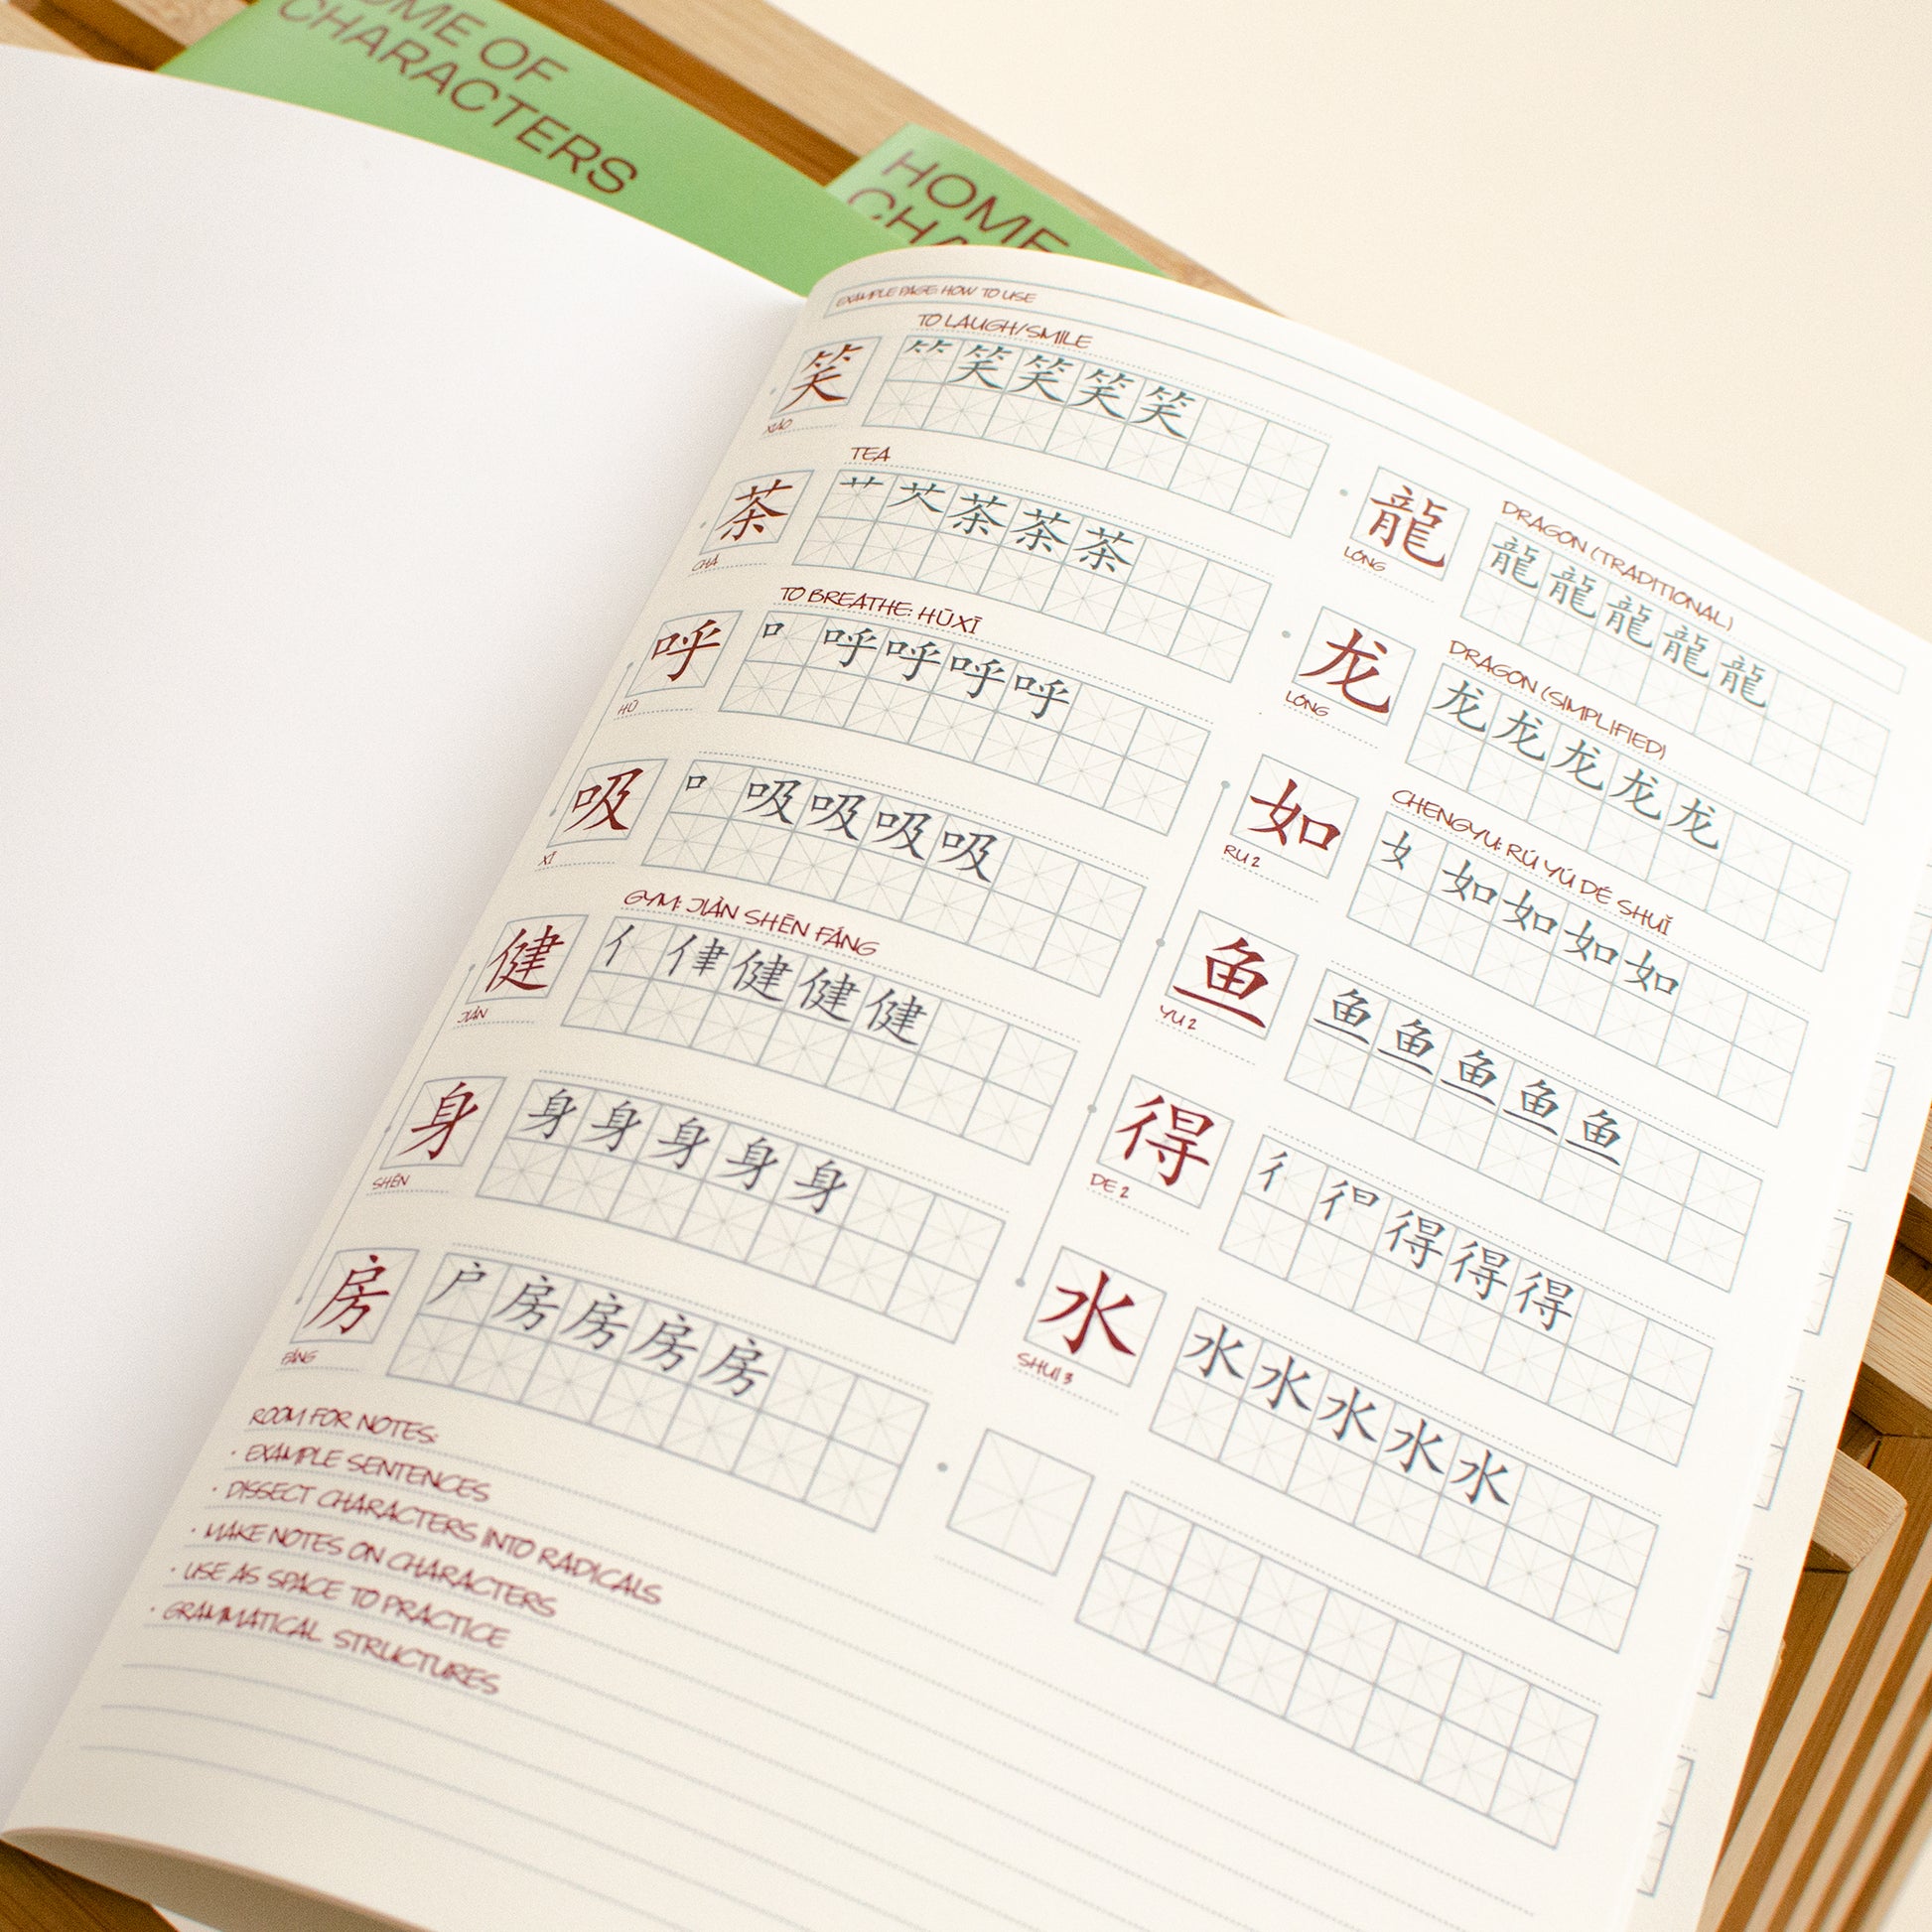 HOME OF
CHARACTERS
HOME
CHA
EXAMPLE PAGE: HOW TO USE
TO LAUGH/SMILE
笑 𥫗 笑 笑 笑 笑
XIÀO
TEA
茶 艹 艾 茶 茶 茶
CHÁ
TO BREATHE: HŪXĪ
呼 口 呼 呼 呼 呼
HŪ
吸 口 吸 吸 吸 吸
XĪ
GYM: JIÀN SHĒN FÁNG
健 亻 律 健 健 健
JIÀN
身 身 身 身 身 身
SHĒN
房 户 房 房 房 房
FÁNG
ROOM FOR NOTES:
· EXAMPLE SENTENCES
· DISSECT CHARACTERS INTO RADICALS
· MAKE NOTES ON CHARACTERS
· USE AS SPACE TO PRACTICE
· GRAMMATICAL STRUCTURES
DRAGON (TRADITIONAL)
龍 龍 龍 龍 龍 龍
LÓNG
DRAGON (SIMPLIFIED)
龙 龙 龙 龙 龙 龙
LÓNG
CHENGYU: RÚ YÚ DÉ SHUǏ
如 女 如 如 如 如
RU 2
鱼 鱼 鱼 鱼 鱼 鱼
YU 2
得 彳 得 得 得
DE 2
水 水 水 水 水 水
SHUI 3